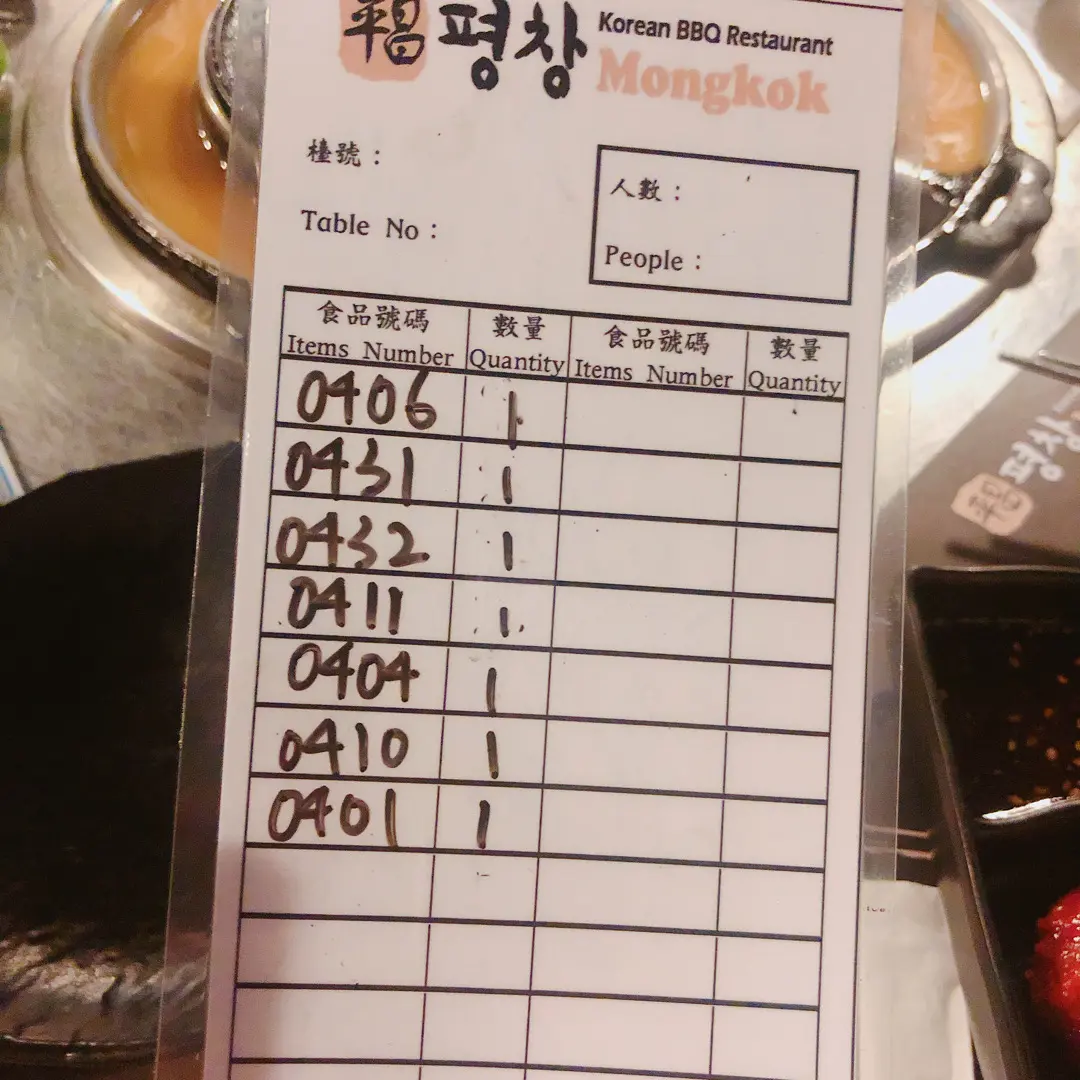 平昌 평창 Korean BBQ Restaurant
Mongkok
檯號：
人數：
Table No :
People :
食品號碼 數量 食品號碼 數量
Items Number Quantity Items Number Quantity
0406 1
0431 1
0432 1
0411 1
0404 1
0410 1
0401 1
평창
平昌